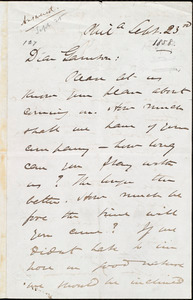 Phil.a Sept. 23rd
1858.
Dear Garrison:
Please let us
know your plans about
coming on. How much
shall we have of your
company — how long
can you stay with
us? The longer the
better. How much be
fore the time will
you come? If we
did not hate to im
pose on good nature
we would be inclined